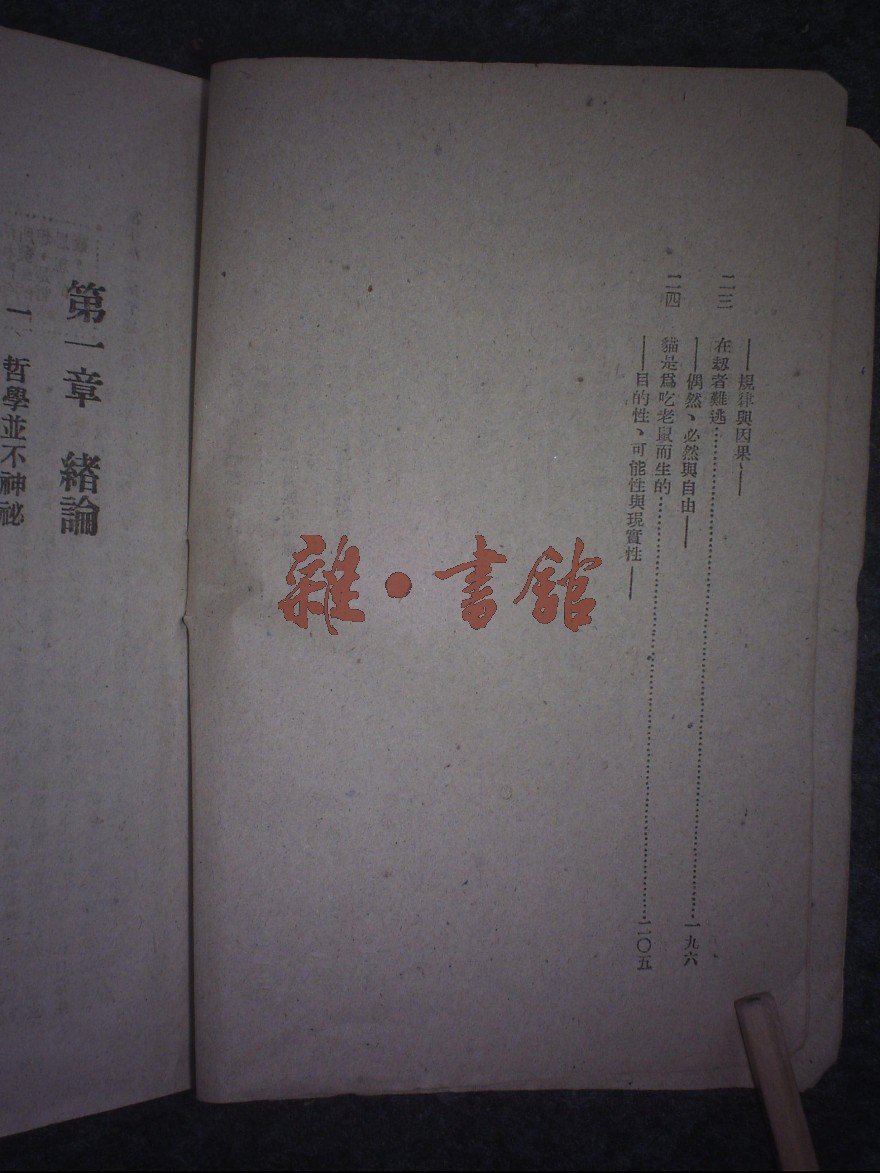 ——規律與因果、——
二三 在刼者難逃……一九六
——偶然、必然與自由——
二四 貓是爲吃老鼠而生的……二〇五
——目的性、可能性與現實性——
第一章 緒論
一、哲學並不神祕
雜·書館